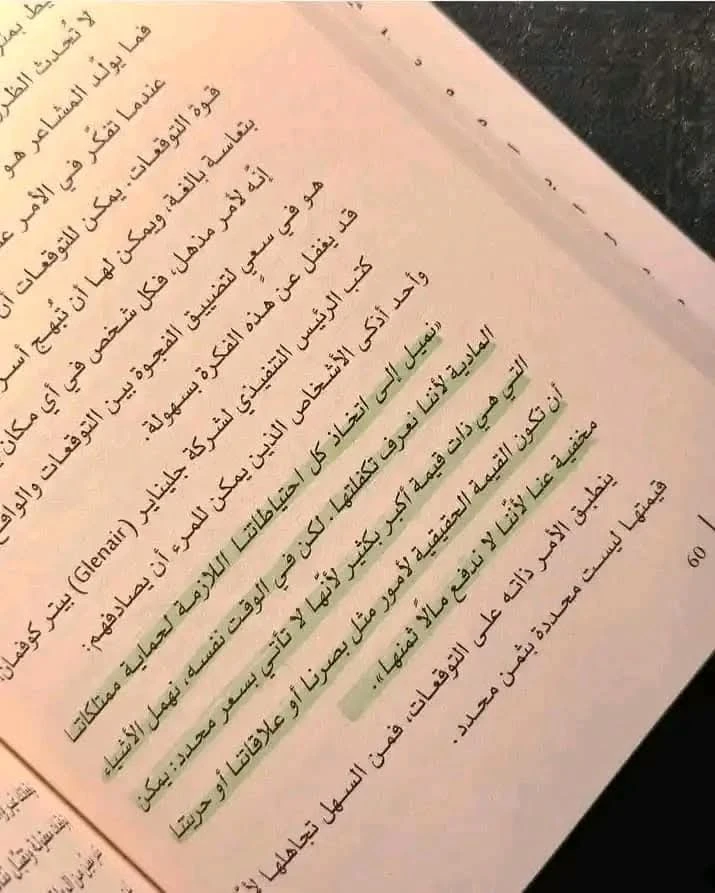 لا تُحدث الظرو
فما يولّد المشاعر هو
عندما تفكّر في الأمر
قوة التوقعات. يمكن للتوقعات أن
بتعاسة بالغة، ويمكن لها أن تُبهج أسر
إنّه لأمر مذهل، فكل شخص في أي مكان
هو في سعيٍ لتضييق الفجوة بين التوقعات والواقع
قد يغفل عن هذه الفكرة بسهولة.
كتب الرئيس التنفيذي لشركة جليناير (Glenair) بيتر كوفمان،
وأحد أذكى الأشخاص الذين يمكن للمرء أن يصادفهم:
«نميل إلى اتخاذ كل احتياطاتنا اللازمة لحماية ممتلكاتنا
المادية لأننا نعرف تكفلتها. لكن في الوقت نفسه، نهمل الأشياء
التي هي ذات قيمة أكبر بكثير لأنّها لا تأتي بسعر محدد: يمكن
أن تكون القيمة الحقيقية لأمور مثل بصرنا أو علاقاتنا أو حريتنا
مخفية عنا لأننا لا ندفع مالًا ثمنها».
ينطبق الأمر ذاته على التوقعات، فمن السهل تجاهلها لأنّ
قيمتها ليست محددة بثمن محدد.
60